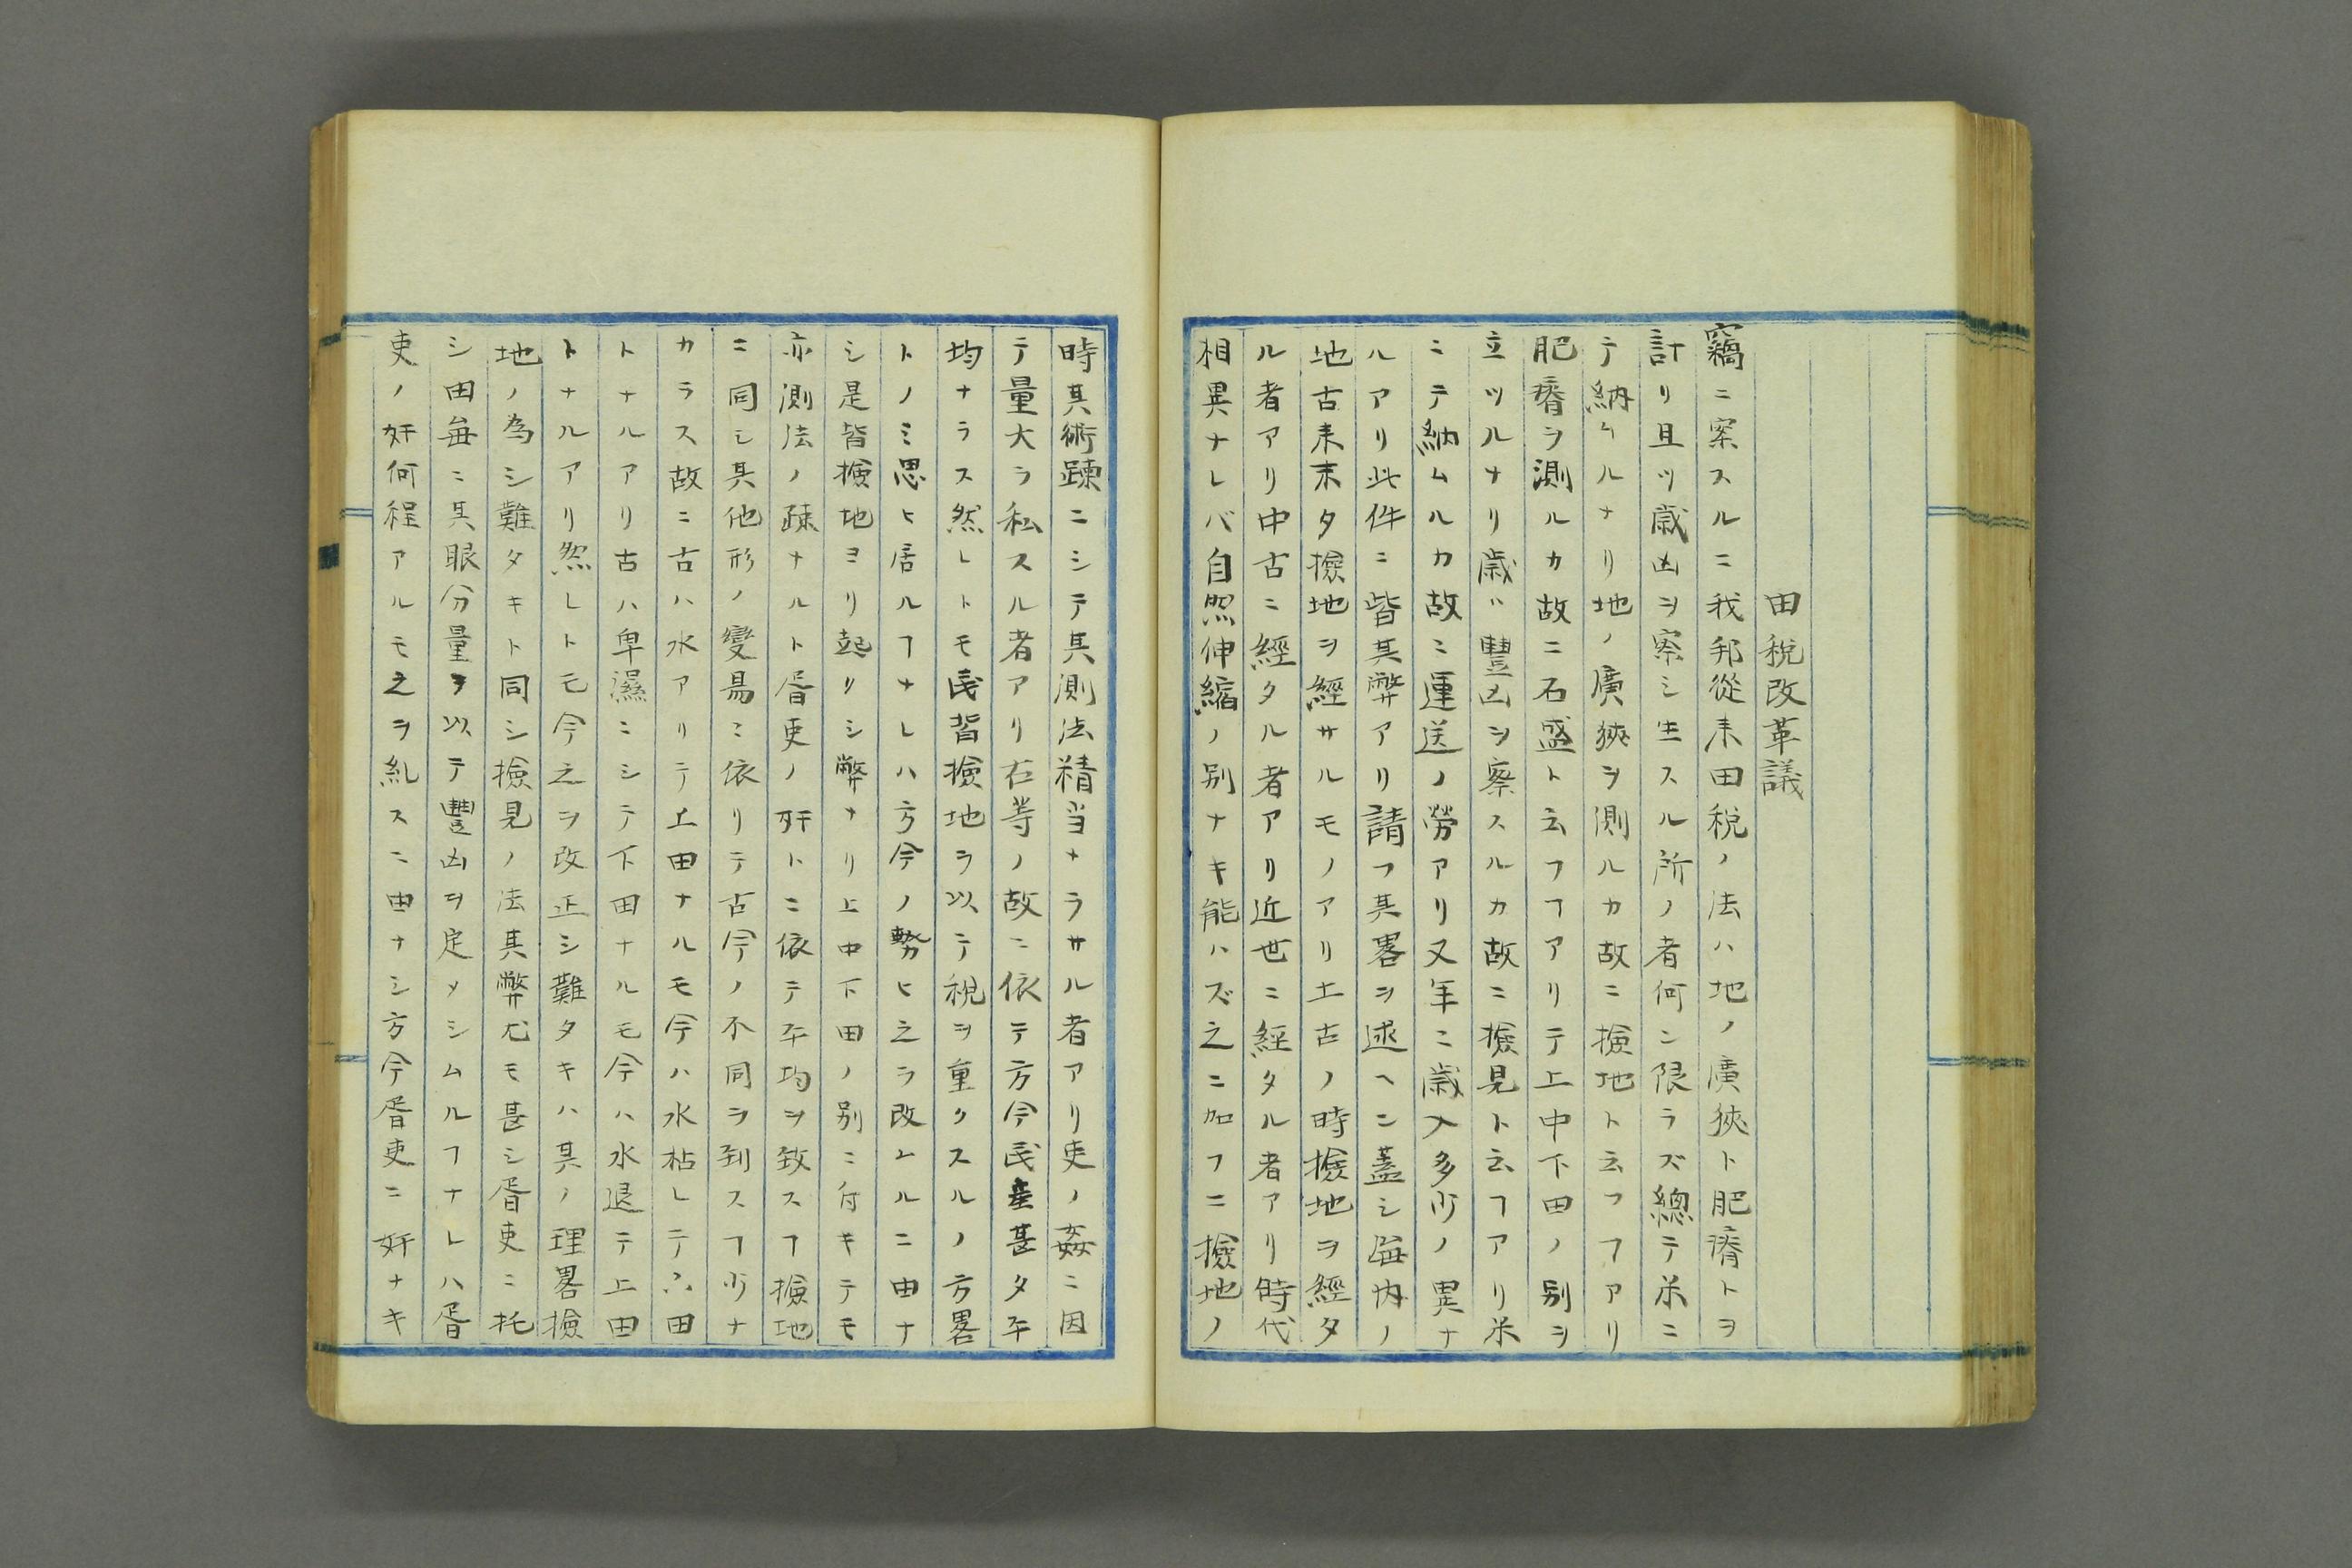 田税改革議
竊ニ案スルニ我邦從来田税ノ法ハ地ノ廣狹ト肥瘠トヲ
計リ且ツ歳凶ヲ察シ生スル所ノ者何ン限ラズ總テ米ニ
テ納ムルナリ地ノ廣狹ヲ測ルカ故ニ撿地ト云フヿアリ
肥瘠ヲ測ルカ故ニ石盛ト云フヿアリテ上中下田ノ別ヲ
立ツルナリ歳ハ豐凶ヲ察スルカ故ニ撿見ト云ヿアリ米
ニテ納ムルカ故ニ運送ノ勞アリ又年ニ歳入多少ノ異ナ
ルアリ此件ニ皆其弊アリ請フ其畧ヲ述ヘン蓋シ海内ノ
地古来末タ撿地ヲ經サルモノアリ土古ノ時撿地ヲ經タ
ル者アリ中古ニ經タル者アリ近世ニ經タル者アリ時代
相異ナレバ自然伸縮ノ別ナキ能ハズ之ニ加フニ撿地ノ
時其術踈ニシテ其測法精当ナラサル者アリ吏ノ姦ニ因
テ量大ヲ私スル者アリ右等ノ故ニ依テ方今民産甚タ平
均ナラス然レトモ民皆撿地ヲ以テ税ヲ重クスルノ方畧
トノミ思ヒ居ルヿナレハ方今ノ勢ヒ之ヲ改ムルニ由ナ
シ是皆撿地ヨリ起リシ弊ナリ上中下田ノ別ニ付キテモ
亦測法ノ踈ナルト胥吏ノ奸トニ依テ平均ヲ致スヿ撿地
ニ同シ其他形ノ變易ニ依リテ古今ノ不同ヲ到スヿ少ナ
カラス故ニ古ハ水アリテ上田ナルモ今ハ水枯レテ下田
トナルアリ古ハ卑濕ニシテ下田ナルモ今ハ水退テ上田
トナルアリ然レトモ今之ヲ改正シ難タキハ其ノ理畧撿
地ノ為シ難タキト同シ撿見ノ法其弊尤モ甚シ胥吏ニ托
シ田每ニ其眼分量ヲ以テ豐凶ヲ定メシムルヿナレハ胥
吏ノ奸何程アルモ之ヲ糺スニ由ナシ方今胥吏ニ奸ナキ